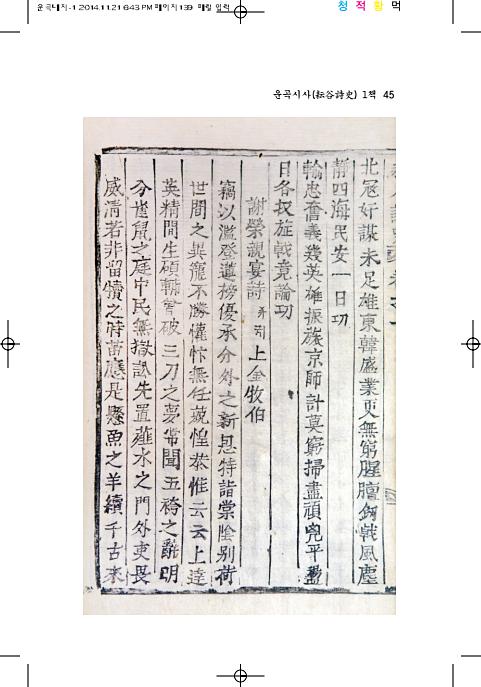 운곡내지-1 2014.11.21 6:43 PM 페이지139 매킨 인텔
청 적 황 먹
운곡시사(耘谷詩史) 1책 45
北寇奸謀未足雄東韓盛業更無窮腥膻劍戟風塵
靜四海民安一日功
輸忠奮義幾英雄振旅京師計莫窮掃盡頑兇平
日各拔旌戟竟論功
謝榮親宴詩 并 上金牧伯
竊以濫登選榜優承分外之新恩特詣棠陰別荷
世間之異寵不勝懽忭無任兢惶恭惟云云上達
英精間生碩輔曾破三刀之夢常聞五袴之辭明
分雀鼠之庭中民無獄訟先置薤水之門外吏畏
威清若非留犢之時苗應是懸魚之羊續千古來